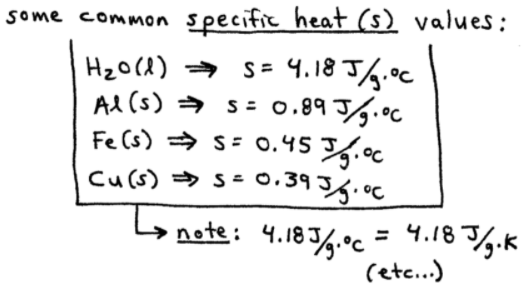 some common specific heat (s) values:
H₂O(l) ⇒ s = 4.18 J/g·°C
Al(s) ⇒ s = 0.89 J/g·°C
Fe(s) ⇒ s = 0.45 J/g·°C
Cu(s) ⇒ s = 0.39 J/g·°C
note: 4.18 J/g·°C = 4.18 J/g·K
(etc...)